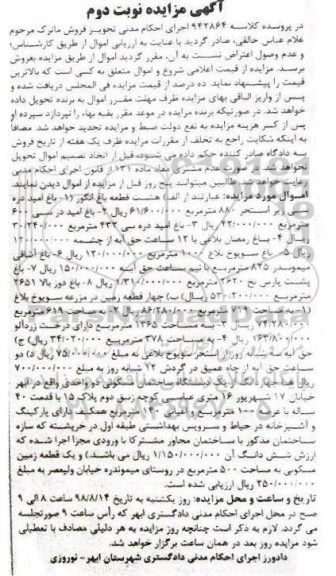 آگهی مزایده نوبت دوم
در پرونده کلاسه ۹۴۲۸۶۴ اجرای احکام مدنی تجویز فروش ماترک مرحوم
غلام عباس خالقی، صادر گردید با عنایت به ارزیابی اموال از طریق کارشناس؛
و عدم وصول اعتراض نسبت به آن، مقرر گردید اموال از طریق مزایده بفروش
برسد. مزایده از قیمت اعلامی شروع و اموال متعلق به کسی است که بالاترین
قیمت را پیشنهاد نماید. ده درصد از قیمت مزایده فی المجلس دریافت شده و
پس از واریز الباقی بهای مزایده ظرف مهلت مقرر اموال به برنده تحویل داده
خواهد شد. در صورتیکه برنده مزایده در موعد مقرر بقیه بهاء را نپردازد سپرده او
پس از کسر هزینه مزایده به نفع دولت ضبط و مزایده تجدید خواهد شد. مضافاً
به اینکه شکایت راجع به تخلف از مقررات مزایده ظرف یک هفته از تاریخ فروش
به دادگاه صادر کننده حکم داده می شود، قبل از اتخاذ تصمیم اموال تحویل
نخواهد شد. در صورت عدم مشتری مفاد ماده ۱۳۱ از قانون اجرای احکام مدنی
رعایت خواهد شد. طالبین میتوانند پنج روز قبل از مزایده از اموال دیدن نمایند.
اموال مورد مزایده: عبارتند از الف هشت قطعه باغ انگور (۱- باغ امید دره
زیر استخر ۸۸۰ مترمربع ۶۱/۶۰۰/۰۰۰ ریال ۲- باغ امید در سی ۶۰۰
مترمربع ۴۲/۰۰۰/۰۰۰ ریال ۳- باغ امید دره سی ۴۳۲ مترمربع ۳۰/۲۴۰/۰۰۰
ریال ۴- باغ رمضان بلاغی با ۱۲ ساعت حق آبه از چشمه
ریال ۵- باغ سویوخ بلاغ ۱۰۰۰ مترمربع ۱۲۰/۰۰۰/۰۰۰ ریال ۶- باغ آشاقی
میموندر ۸۲۵ مترمربع با نیم ساعت حق آبه ۱۵۰/۰۰۰/۰۰۰ ریال ۷- باغ
پشت پارس نخ ۲۶۲۰ مترمربع ۱۳۱/۰۰۰/۰۰۰ ریال ۸- باغ دوز بالا ۲۶۵۱
مترمربع ریال) ب) چهار قطعه زمین در مزرعه سویوخ بلاغ
(۱- به مساحت ۷۱۹ مترمربع ۸۶/۲۸۰/۰۰۰ ریال ۲- به مساحت ۶۱۹ مترمربع
۷۴/۲۸۰/۰۰۰ ریال ۳- به مساحت ۱۳۶۵ مترمربع دارای درخت زردآلو
۱۶۳/۸۰۰/۰۰۰ ریال ۴- به مساحت ۳۷۸ مترمربع ۳۴/۰۲۰/۰۰۰ ریال) ج)
حق آبه سه شبانه روز از استخر سویوخ بلاغی به مبلغ ۷۵/۰۰۰/۰۰۰ ریال د) دو
ساعت حق آبه از چاه عمیق در گردش ۱۲ شبانه روز به مبلغ ۷۰۰/۰۰۰/۰۰۰
ریال یک دستگاه ساختمان مسکونی دو واحدی واقع در ابهر
خیابان ۱۷ شهریور ۱۶ متری عباسی کوچه زنبق دوم پلاک ۱۵ با قدمت ۴۰
ساله با عرصه ۱۰۰ مترمربع و اعیانی ۱۲۰ مترمربع همکف دارای پارکینگ
و آشپزخانه در حیاط و سرویس بهداشتی طبقه اول در خرپشته که سازه
ساختمان مذکور با ساختمان مجاور مشترکا با ورودی مجزا اجرا شده که
ارزش شش دانگ آن ۱/۱۵۰/۰۰۰/۰۰۰ ریال می باشند) و یک قطعه زمین
مسکونی به مساحت ۵۰۰ مترمربع در روستای میموندره خیابان ولیعصر به مبلغ
۲۵۰/۰۰۰/۰۰۰ ریال ارزیابی شده است.
تاریخ و ساعت و محل مزایده: روز یکشنبه به تاریخ ۹۸/۸/۱۴ ساعت ۸ الی ۹
صبح در محل اجرای احکام مدنی دادگستری ابهر که رأس ساعت ۹ صورتجلسه
می گردد. لازم به ذکر است چنانچه روز مزایده به هر دلیلی مصادف با تعطیلی
شود مزایده روز بعد در همان ساعت برگزار خواهد شد.
دادورز اجرای احکام مدنی دادگستری شهرستان ابهر- نوروزی